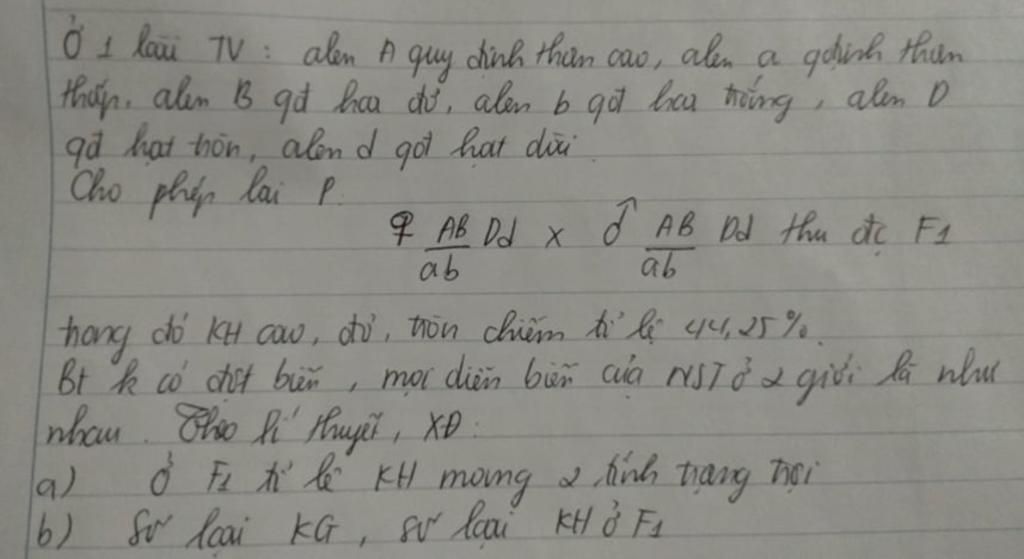 Ở 1 loài TV : alen A quy định thân cao, alen a qđịnh thân
thấp. alen B qđ hoa đỏ, alen b qđ hoa trắng, alen D
qđ hạt tròn, alen d qđ hạt dài.
Cho phép lai P.
♀ AB/ab Dd x ♂ AB/ab Dd thu đc F1
trong đó KH cao, đỏ, tròn chiếm tỉ lệ 44,25%.
Bt k có đột biến, mọi diễn biến của NST ở 2 giới là như
nhau. Theo lí thuyết, XĐ:
a) Ở F1 tỉ lệ KH mang 2 tính trạng trội
b) Số loại KG, số loại KH ở F1